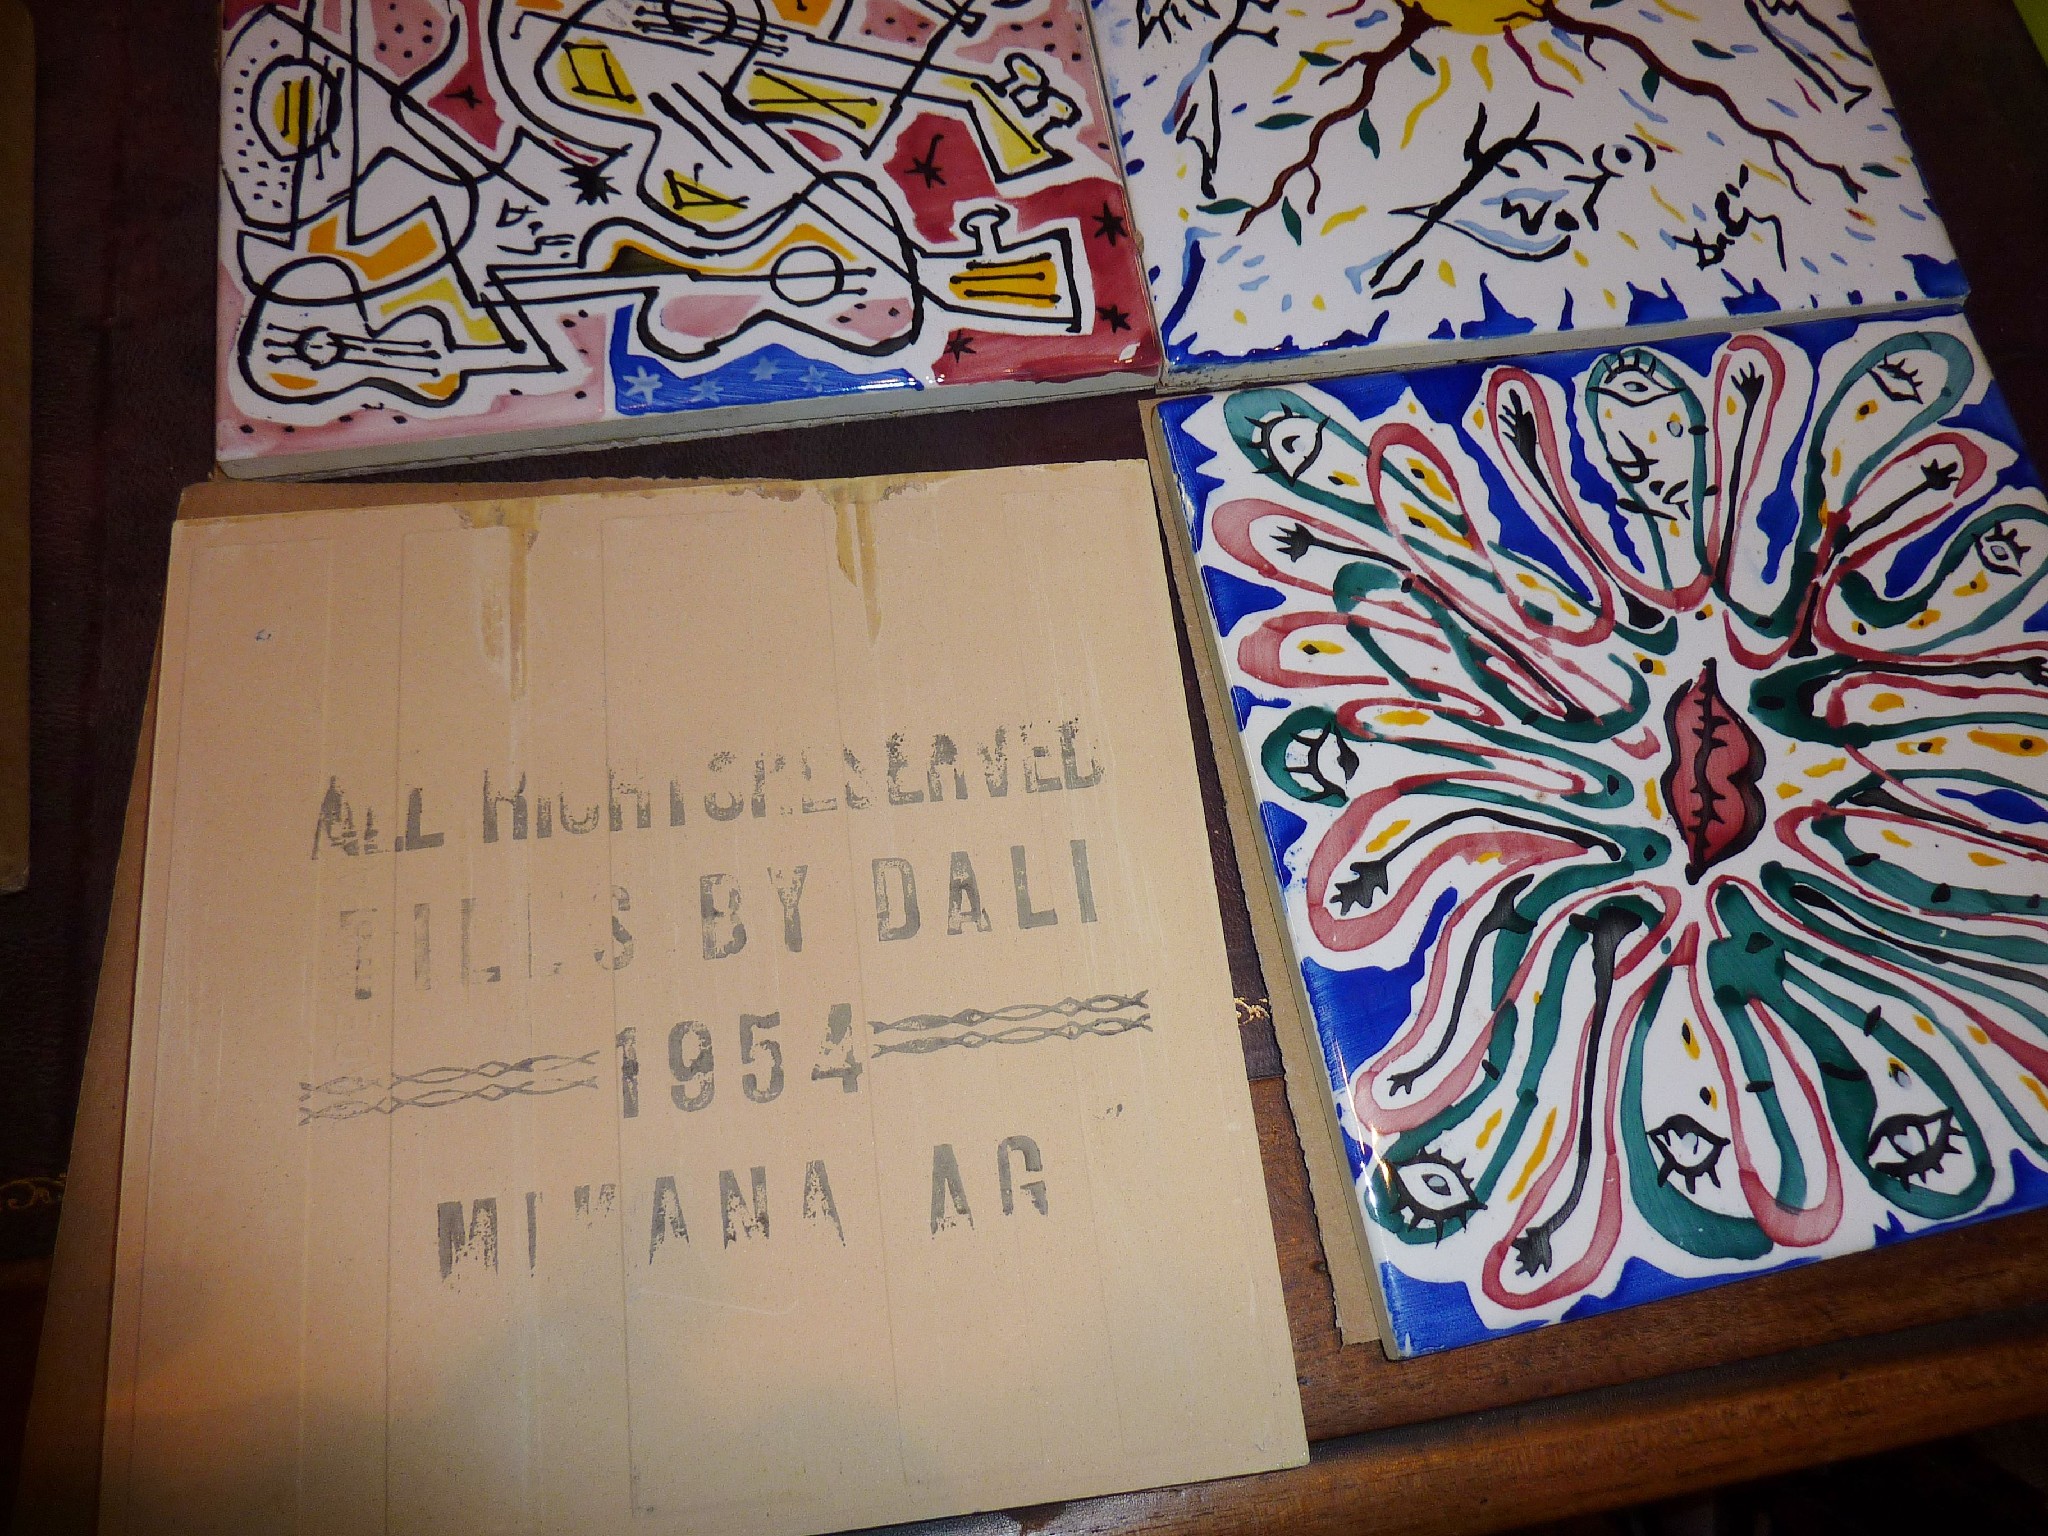 Dalí
Dalí
Dalí
ALL RIGHTS RESERVED
TILLS BY DALI
1954
MIKANA AG